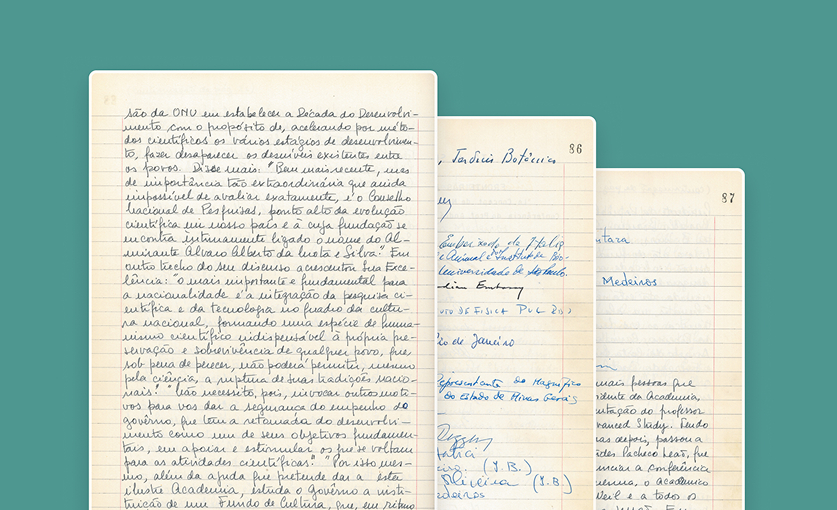 são da ONU em estabelecer a Década do Desenvolvi-
mento com o propósito de, acelerando por méto-
dos científicos os vários estágios de desenvolvimen-
to, fazer desaparecer os desníveis existentes entre
os povos. Disse mais: "Bem mais recente, mas
de importância tão extraordinária que ainda
impossível de avaliar exatamente, é o Conselho
Nacional de Pesquisas, ponto alto da evolução
científica em nosso país e à cuja fundação se
encontra intimamente ligado o nome do Al-
mirante Alvaro Alberto da Mota e Silva" Em
outro trecho do seu discurso acrescentou Sua Exce-
lência: "o mais importante e fundamental para
a nacionalidade é a integração da pesquisa ci-
entífica e da tecnologia no quadro da cultu-
ra nacional, formando uma espécie de huma-
nismo científico indispensável à própria pre-
servação e sobrevivência de qualquer povo, que
sob pena de perecer, não poderá permitir, mesmo
pela ciência, a ruptura de suas tradições nacio-
nais." "Não necessito, pois, invocar outros moti-
vos para vos dar a segurança do empenho do
govêrno, que tem a retomada do desenvolvi-
mento como um de seus objetivos fundamen-
tais, em apoiar e estimular os que se voltam
para as atividades científicas." "Por isso mes-
mo, além da ajuda que pretende dar a esta
ilustre Academia, estuda o Govêrno a insti-
tuição de um Fundo de Cultura, que, em ritmo
86
, Jardim Botânico
Embaixada da Itália
e Animal e Instituto de Bio-
Universidade de São Paulo.
dian Embassy
UTO DE FISICA PUC RIO
rio de Janeiro
Representante do Magnífico
do Estado de Minas Gerais
(J.B.)
Oliveira (J.B.)
edeiros
87
Medeiros
mais pessoas que
sidente da Academia,
ntação do professor
vanced Study. Tendo
as depois, passou a
ides Pacheco Leão, que
unciar a conferência
uerra, o acadêmico
Weil e a todos os